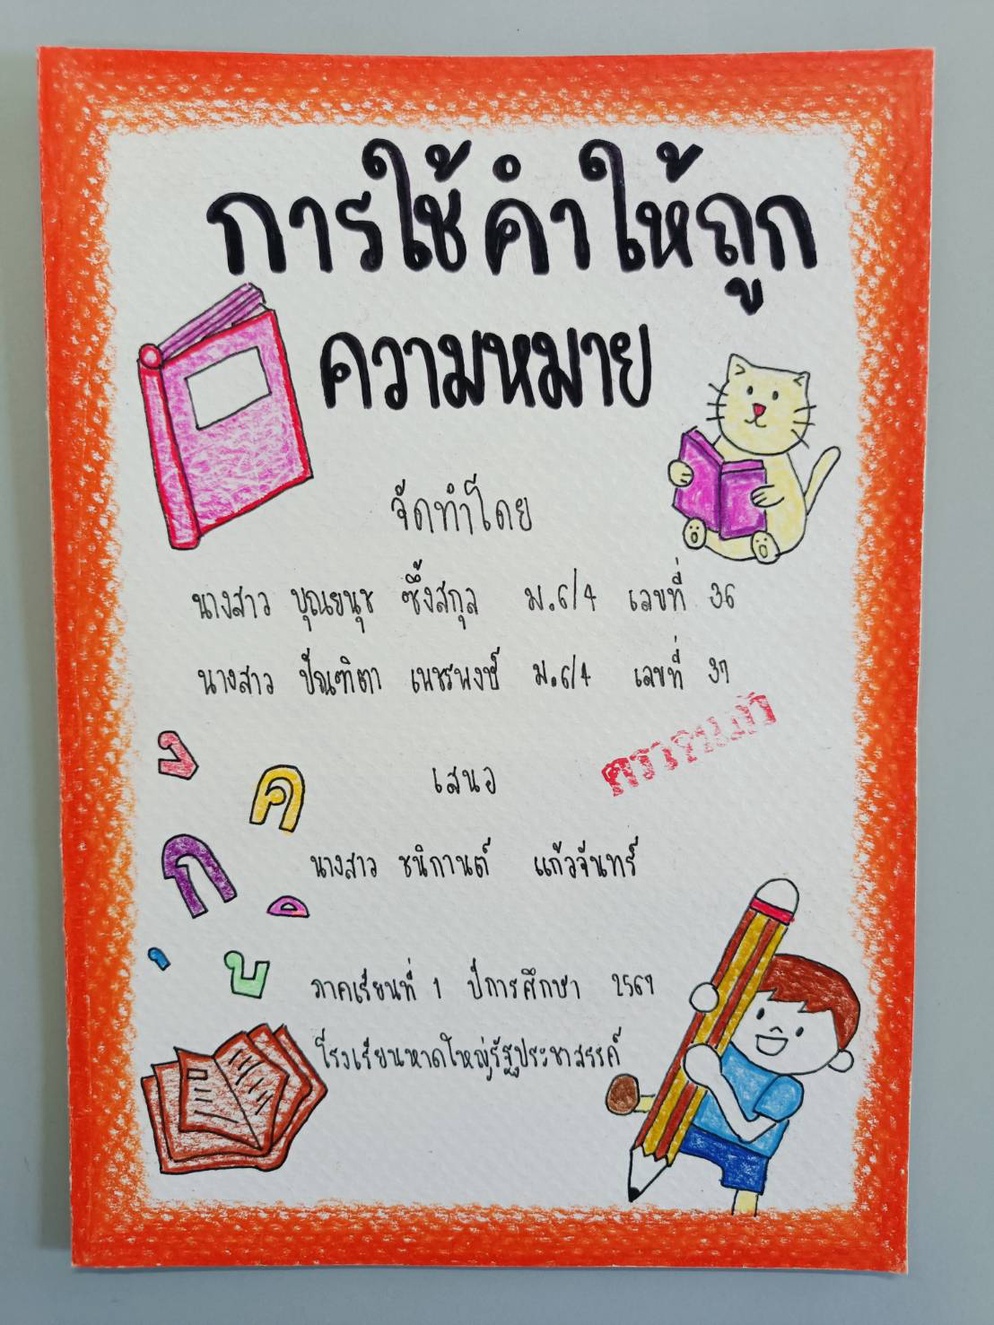 การใช้คำให้ถูก
ความหมาย
จัดทำโดย
นางสาว บุณยนุช ซึ้งสกุล ม.6/4 เลขที่ 36
นางสาว ปัณฑิตา เพชรพงษ์ ม.6/4 เลขที่ 37
ง
ค
เสนอ
ตรวจแล้ว
ก
นางสาว ชนิกานต์ แก้วจันทร์
บ
ภาคเรียนที่ 1 ปีการศึกษา 2567
โรงเรียนหาดใหญ่รัฐประชาสรรค์